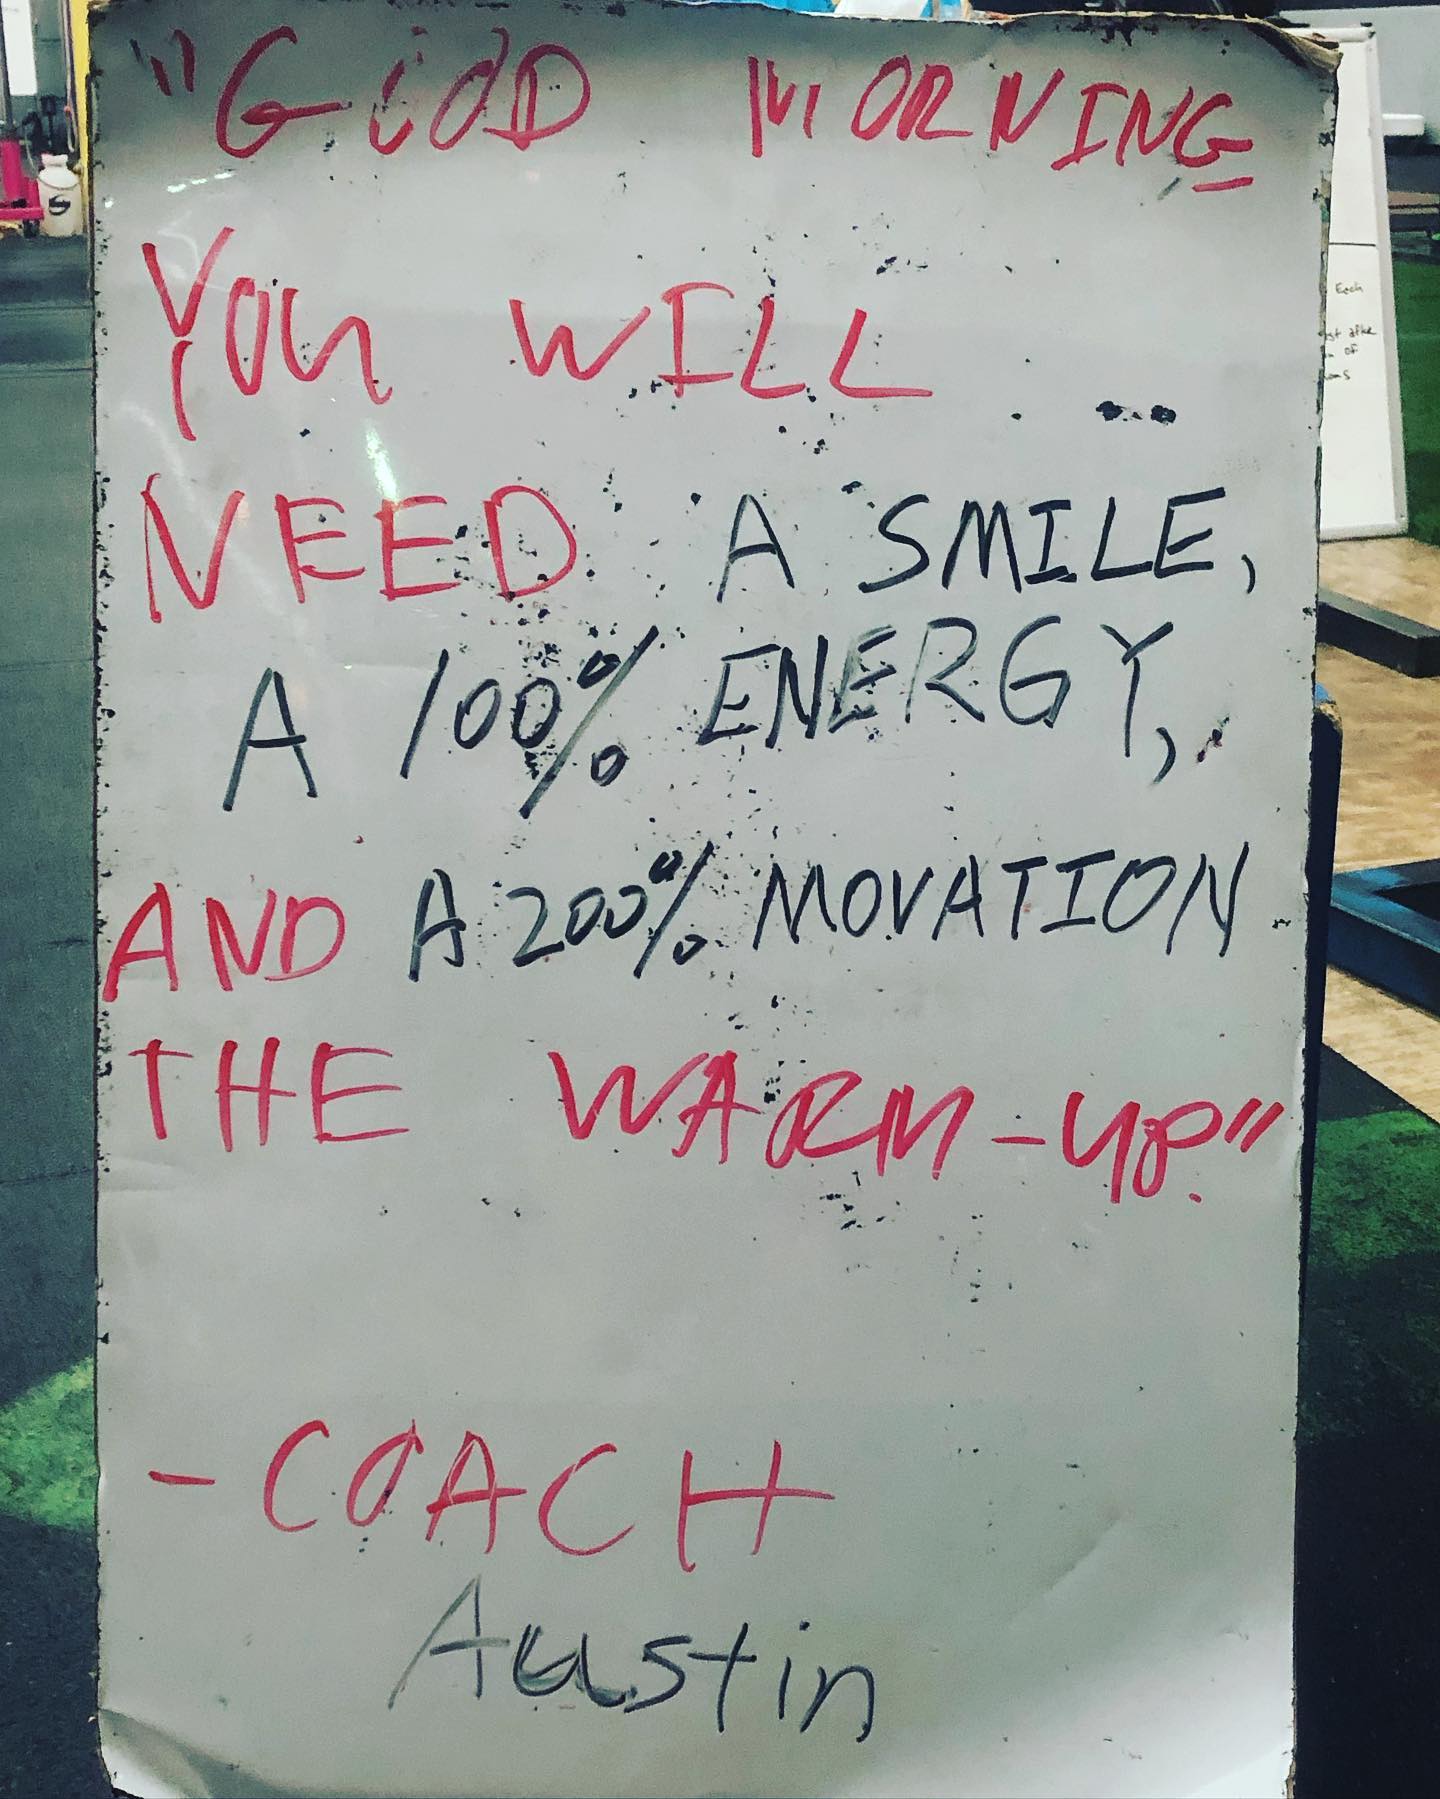 "GOOD MORNING
YOU WILL ...
NEED A SMILE,
A 100% ENERGY,
AND A 200% MOVATION
THE WARM-UP."
-COACH
Austin
Each